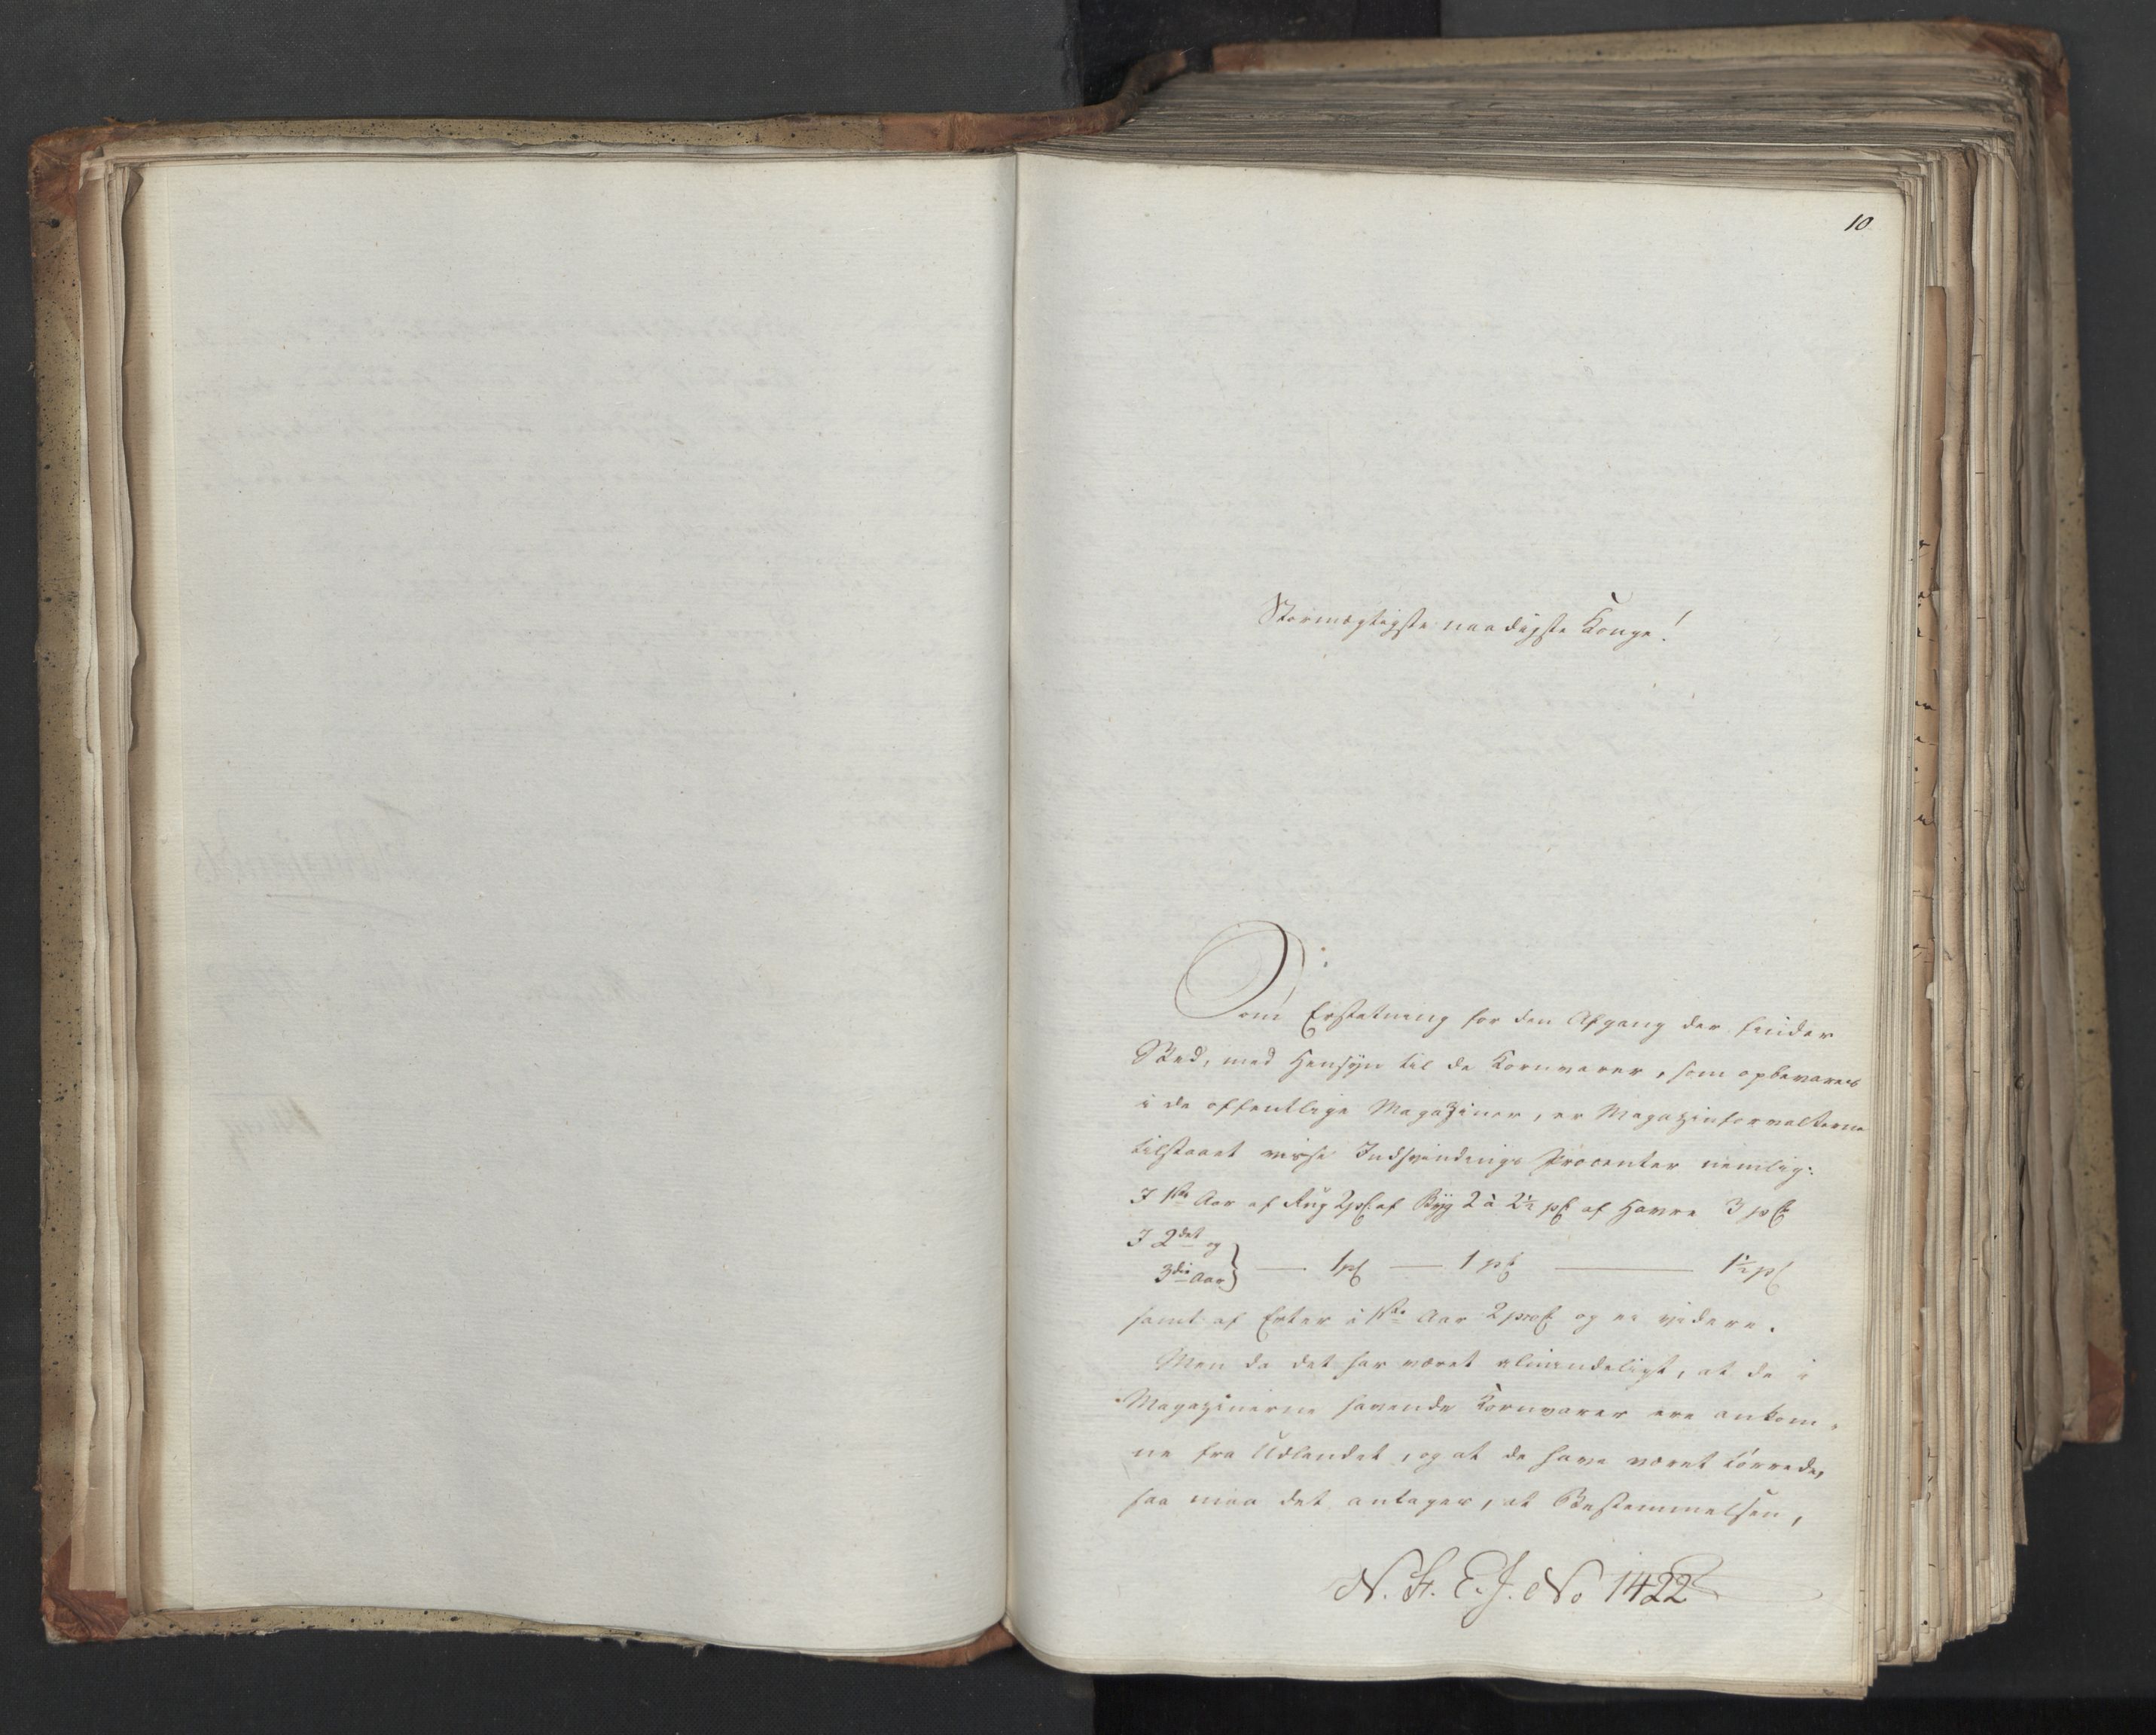 10
Stormægtigste naadigste Konge!
Som Erstatning for den Afgang der finder
Sted, med Hensyn til de Kornvarer, som opbevares
i de offentlige Magaziner, er Magazinforvalterne
tilstaaet visse Indsvindings Procenter nemlig:
I 1ste Aar af Rug 2 pC. af Byg 2 à 2½ pCt af Havre 3 pCt
I 2det og
3die Aar} — 1 pC — 1 pCt — 1½ pC
samt af Erter i 1ste Aar 2 proC og ei videre.
Men da det har været almindeligt, at de i
Magazinerne havende Kornvarer ere ankom-
ne fra Udlandet, og at de have været tørrede,
saa maa det antages, at Bestemmelsen,
N. F. E. J. No 1422